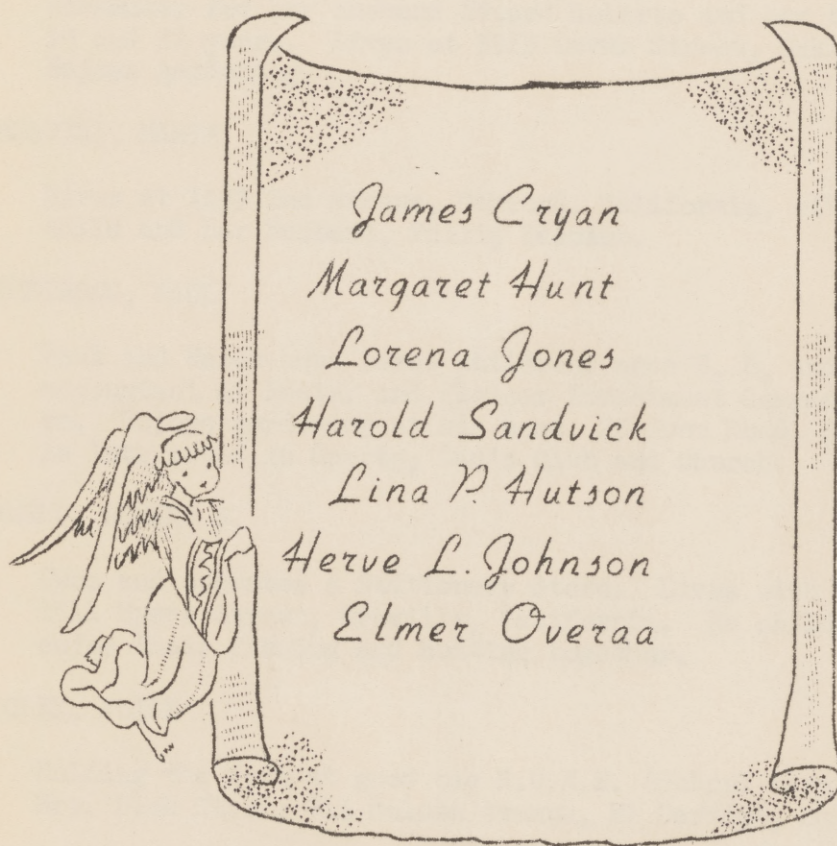 James Cryan
Margaret Hunt
Lorena Jones
Harold Sandvick
Lina P. Hutson
Herve L. Johnson
Elmer Overaa